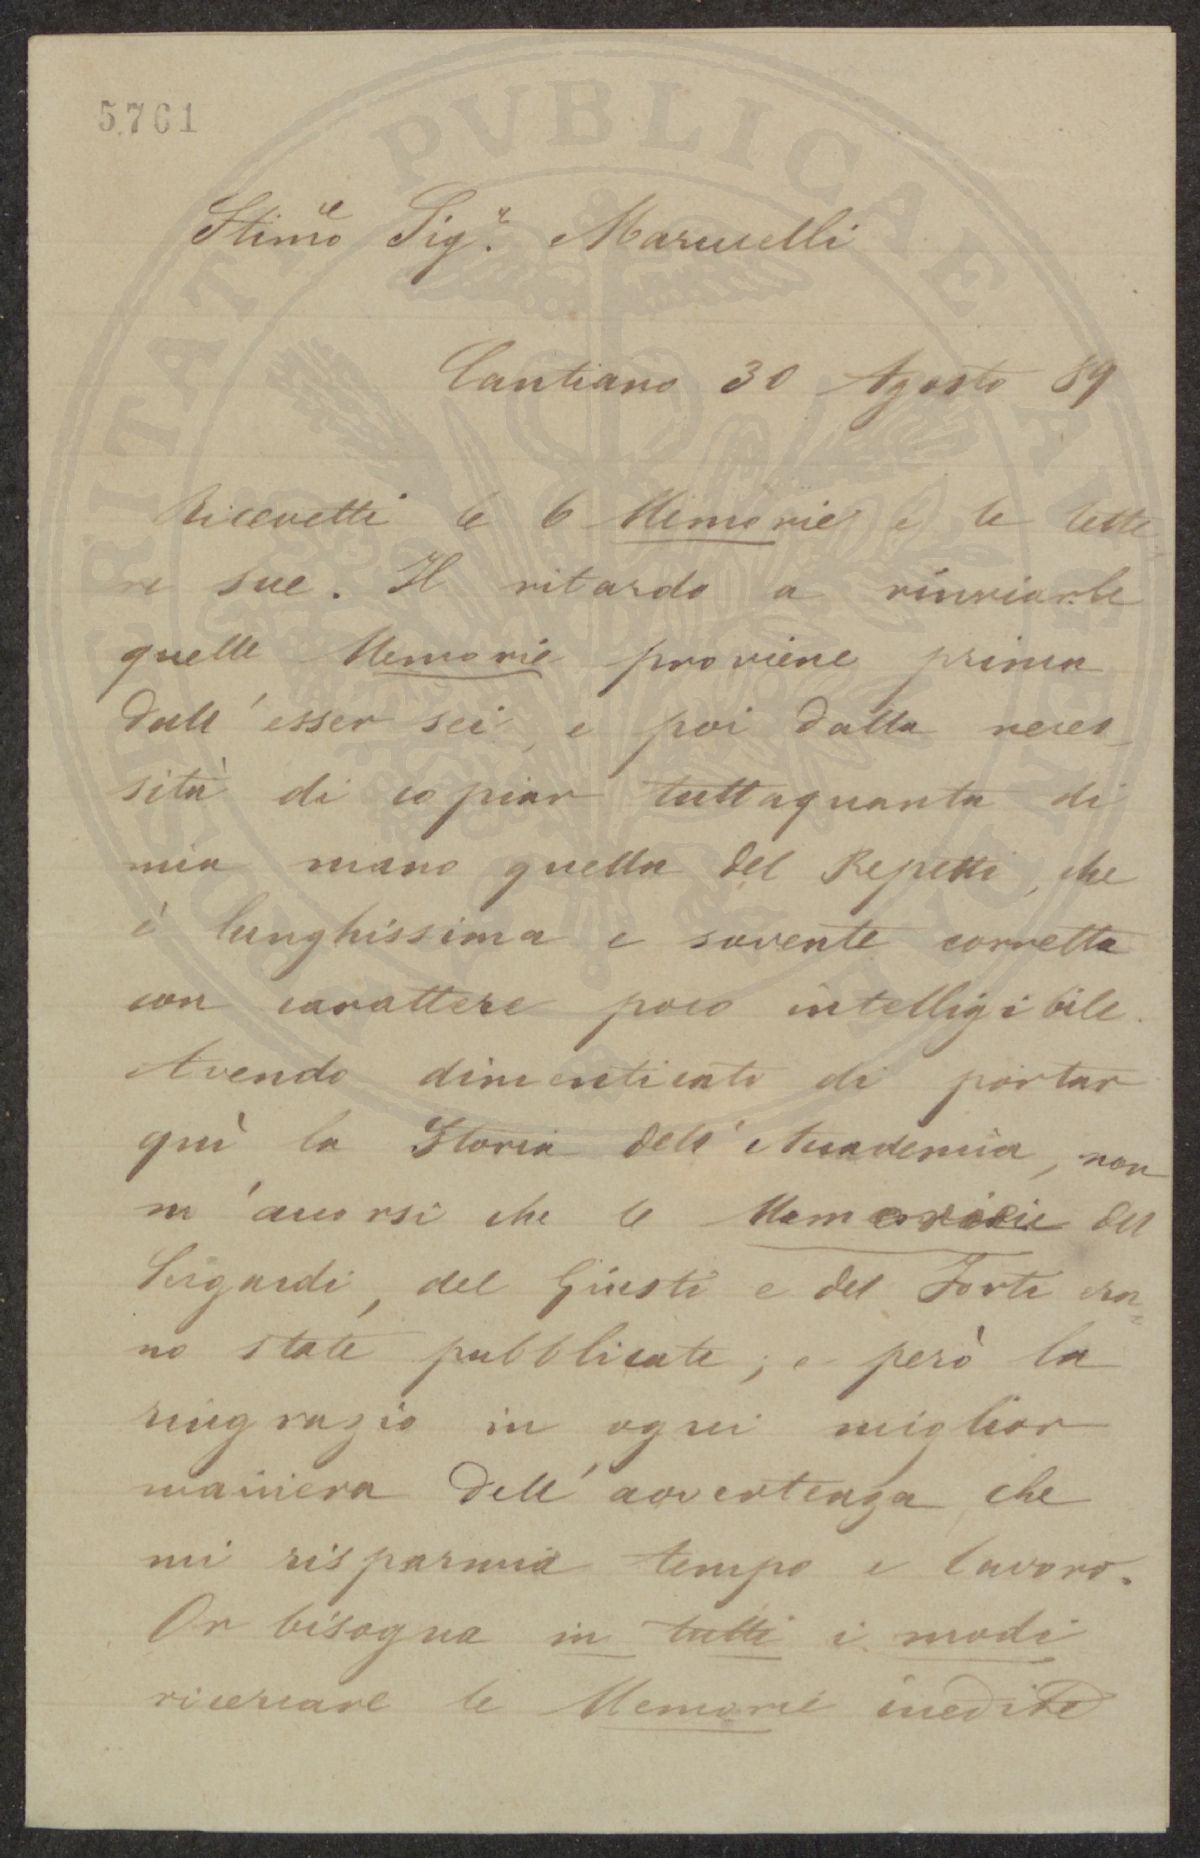 5761
Stimo Sigr. Marucelli
Cantiano 30 Agosto 89
Ricevetti le 6 Memorie e le lette-
re sue. Il ritardo a rinviarle
quelle Memorie proviene prima
dall'esser sei, e poi dalla neces-
sità di copiar tuttaquanta di
mia mano quella del Repetti, che
è lunghissima e sovente corretta
con carattere poco intelligibile.
Avendo dimenticato di portar
quì la Storia dell'Accademia, non
m'accorsi che le Memorie del
Sergardi, del Giusti e del Forti era-
no state pubblicate; e però la
ringrazio in ogni miglior
maniera dell'avvertenza, che
mi risparmia tempo e lavoro.
Or bisogna in tutti i modi
ricercare le Memorie inedite